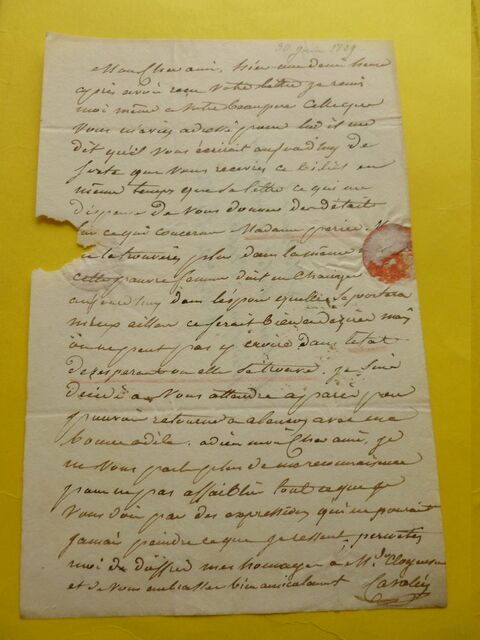 30 juin 1829
Mon cher ami, hier une demi heure
après avoir reçu votre lettre je remis
moi même a votre beaupere celle que
vous m'aviez adressé pour lui il me
dit qu'il vous écrirait aujourd'huy de
sorte que vous recevrez ce billet en
même temps que sa lettre ce qui me
dispense de vous donner des détails
sur ce qui concerne Madame
ne la trouverez plus dans la même
cette pauvre femme doit en changer
aujourd'huy dans l'espoir quelle se portera
mieux ailleurs ce serait bien a desirer mais
on ne peut pas y croire dans l'etat
desesperé ou elle se trouve. je suis
décidé a vous attendre a paris pour
pouvoir retourner a alençon avec ma
bonne adèle. adieu mon cher ami, je
ne vous parle plus de ma reconnaissance
pour ne pas affaiblir tout ce que je
vous dois par des expressions qui ne pourait
jamais peindre ce que je ressent, permettez
moi d'offrir mes homages à Mde
et de vous embrasser bien amicalement